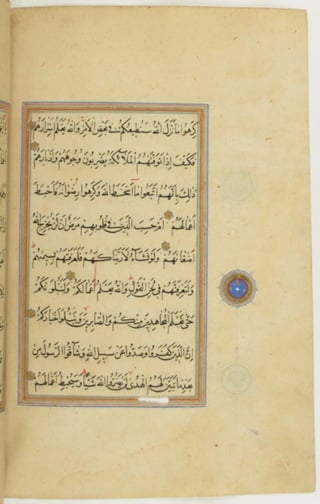 كَرِهُوا مَا نَزَّلَ اللهُ سَنُطِيعُكُمْ فِي بَعْضِ الْأَمْرِ وَاللهُ يَعْلَمُ إِسْرَارَهُمْ
فَكَيْفَ إِذَا تَوَفَّتْهُمُ الْمَلَائِكَةُ يَضْرِبُونَ وُجُوهَهُمْ وَأَدْبَارَهُمْ
ذَلِكَ بِأَنَّهُمُ اتَّبَعُوا مَا أَسْخَطَ اللهَ وَكَرِهُوا رِضْوَانَهُ فَأَحْبَطَ
أَعْمَالَهُمْ أَمْ حَسِبَ الَّذِينَ فِي قُلُوبِهِمْ مَرَضٌ أَنْ لَنْ يُخْرِجَ اللهُ
أَضْغَانَهُمْ وَلَوْ نَشَاءُ لَأَرَيْنَاكَهُمْ فَلَعَرَفْتَهُمْ بِسِيمٰهُمْ
وَلَتَعْرِفَنَّهُمْ فِي لَحْنِ الْقَوْلِ وَاللهُ يَعْلَمُ أَعْمَالَكُمْ وَلَنَبْلُوَنَّكُمْ
حَتَّى نَعْلَمَ الْمُجَاهِدِينَ مِنْكُمْ وَالصَّابِرِينَ وَنَبْلُوَ أَخْبَارَكُمْ
إِنَّ الَّذِينَ كَفَرُوا وَصَدُّوا عَنْ سَبِيلِ اللهِ وَشَاقُّوا الرَّسُولَ مِنْ
بَعْدِ مَا تَبَيَّنَ لَهُمُ الْهُدَى لَنْ يَضُرُّوا اللهَ شَيْئًا وَسَيُحْبِطُ أَعْمَالَهُمْ